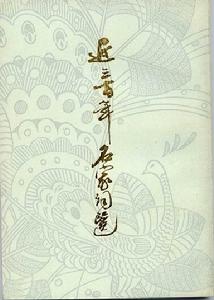 近三百年名家词選